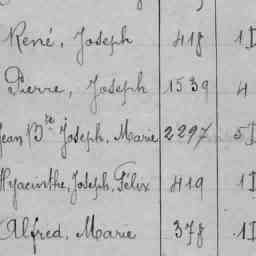 René, Joseph 418 1D
Pierre, Joseph 1539 4
Jean Bte Joseph, Marie 2297 5D
Hyacinthe, Joseph, Félix 419 1D
Alfred, Marie 378 1D